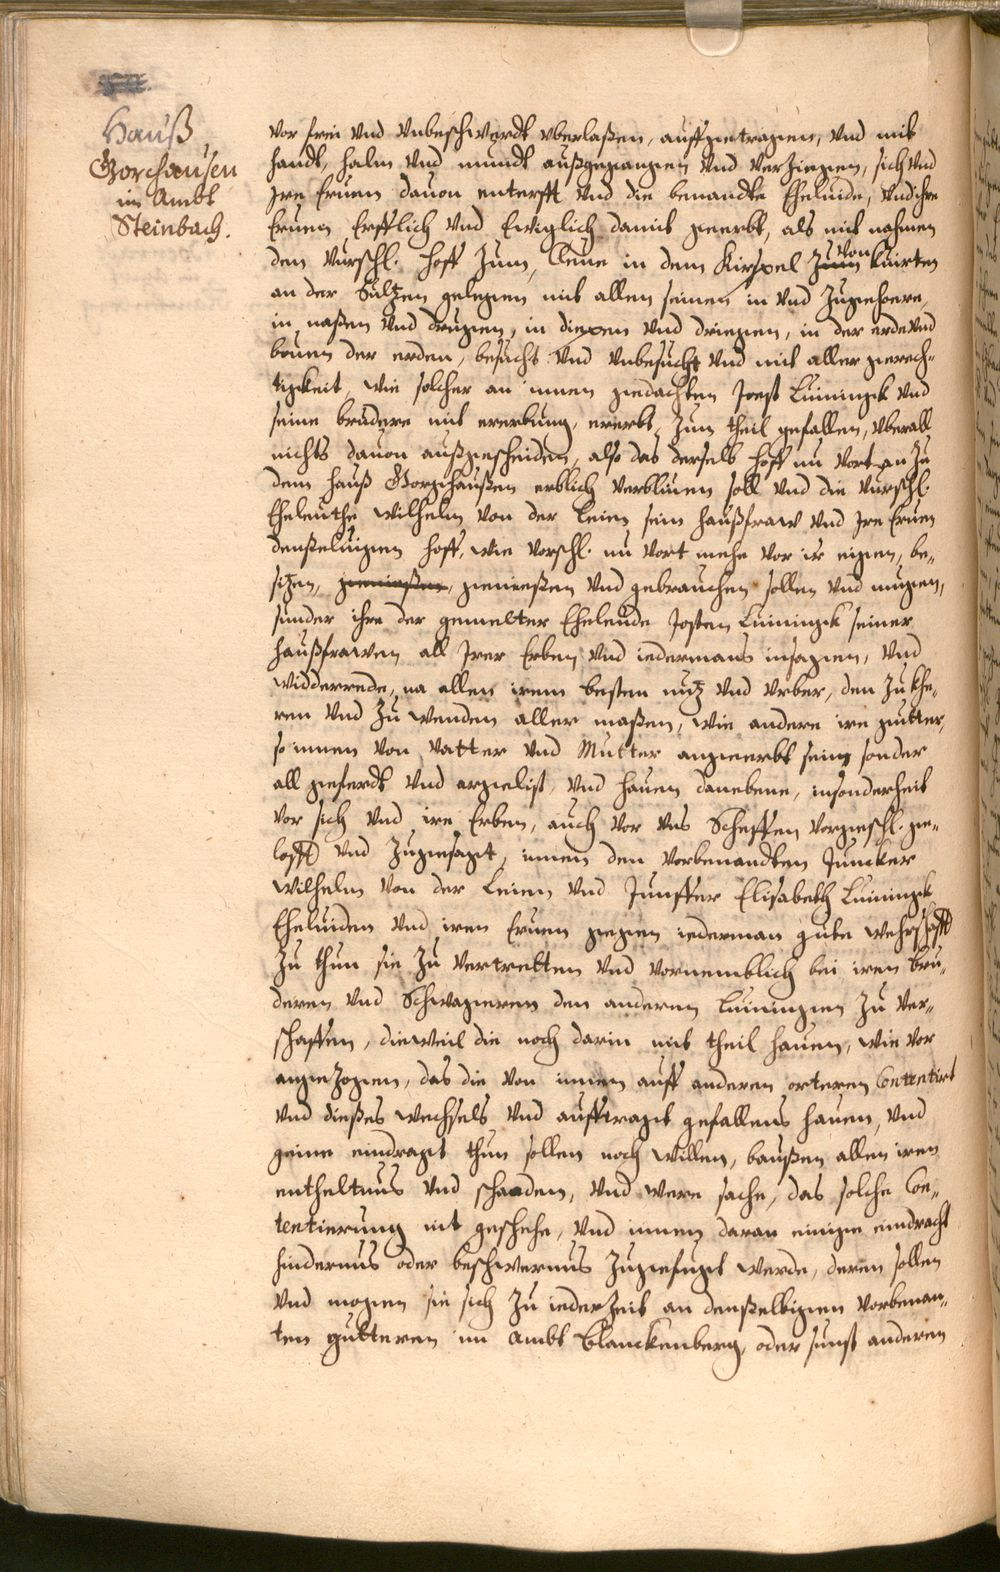 Hauß
Gorchausen
im Ambt
Steinbach.
vor frei vnd vnbeschwerdt vberlaßen, auffgetragen, vnd mit
handt, halm vnd mundt außgegangen vnd verziegen, sich vnd
Jre Eruen dauon enterfft vnd die benandte Eheluide, vnd ihre
Eruen Erfflich vnd Ewiglich damit geerbt, als mit nahmen
den vurschl. hoff Zum, Leue in dem Kirspel Zum von Kuirten
an der Sultzen gelegen mit allen seinen in vnd Zugehoere,
in naßen vnd drugen, in diepen vnd driegen, in der erde vnd
bouen der erden, besucht vnd vnbesucht vnd mit aller gerech-
tigkeit, wie solcher an innen gedachten Joest Luiningk vnd
seine brudere mit ererbung, ererbt, Zum theil gefallen, vberall
nichts dauon außgescheiden, also das derselb hoff nu vort an Zu
dem hauß Gorghaußen erblich verbliuen soll vnd die vurschl.
Eheleuthe Wilhelm von der Leien sein haußfraw vnd Jre Eruen
denßeluigen hoff, wie vorschl. nu vort mehe vor ir eigen, be-
sitzen, genießen, genießen vnd gebrauchen sollen vnd mugen,
sunder ihre der gemelter Eheleude Josten Luiningk seiner
haußfrawen all Jrer Erben vnd iedermans insagen, vnd
widderrede, na allen irem besten nutz vnd vrber, den Zu khe-
ren vnd Zu wenden aller maßen, wie andere ire gutter,
so innen von vatter vnd Mutter angeerbt sein, sonder
all geferdt vnd argelist, vnd hauen danebene, insonderheit
vor sich vnd ire Erben, auch vor vns Scheffen vorgeschl. ge-
lofft vnd Zugesagt, innen den vorbenandten Juncker
Wilhelm von der Leien vnd Junffer Elisabeth Luiningk
Eheluiden vnd iren Eruen gegen iederman gute wehrschafft
Zu thun sie Zu vertretten vnd vornemblich bei iren bru-
deren vnd Schwageren den anderen Luiningen Zu ver-
schaffen, dieweil die noch darin mit theil hauen, wie vor
angezogen, das die von innen auff anderen orteren Contentirt
vnd dießes wechsels vnd aufftragt gefallens hauen, vnd
geine eindragt thun sollen noch willen, baußen allen iren
entheltnus vnd schaden, vnd were sache, das solche Con-
tentierung nit geschehe, vnd innen daran einige eindracht
hindernus oder beschwernus Zugefugt werde, deren sollen
vnd mogen sie sich Zu ieder Zeit an denßelbigen vorbenan-
ten gutteren im Ambt Blanckenberg, oder sunst anderen